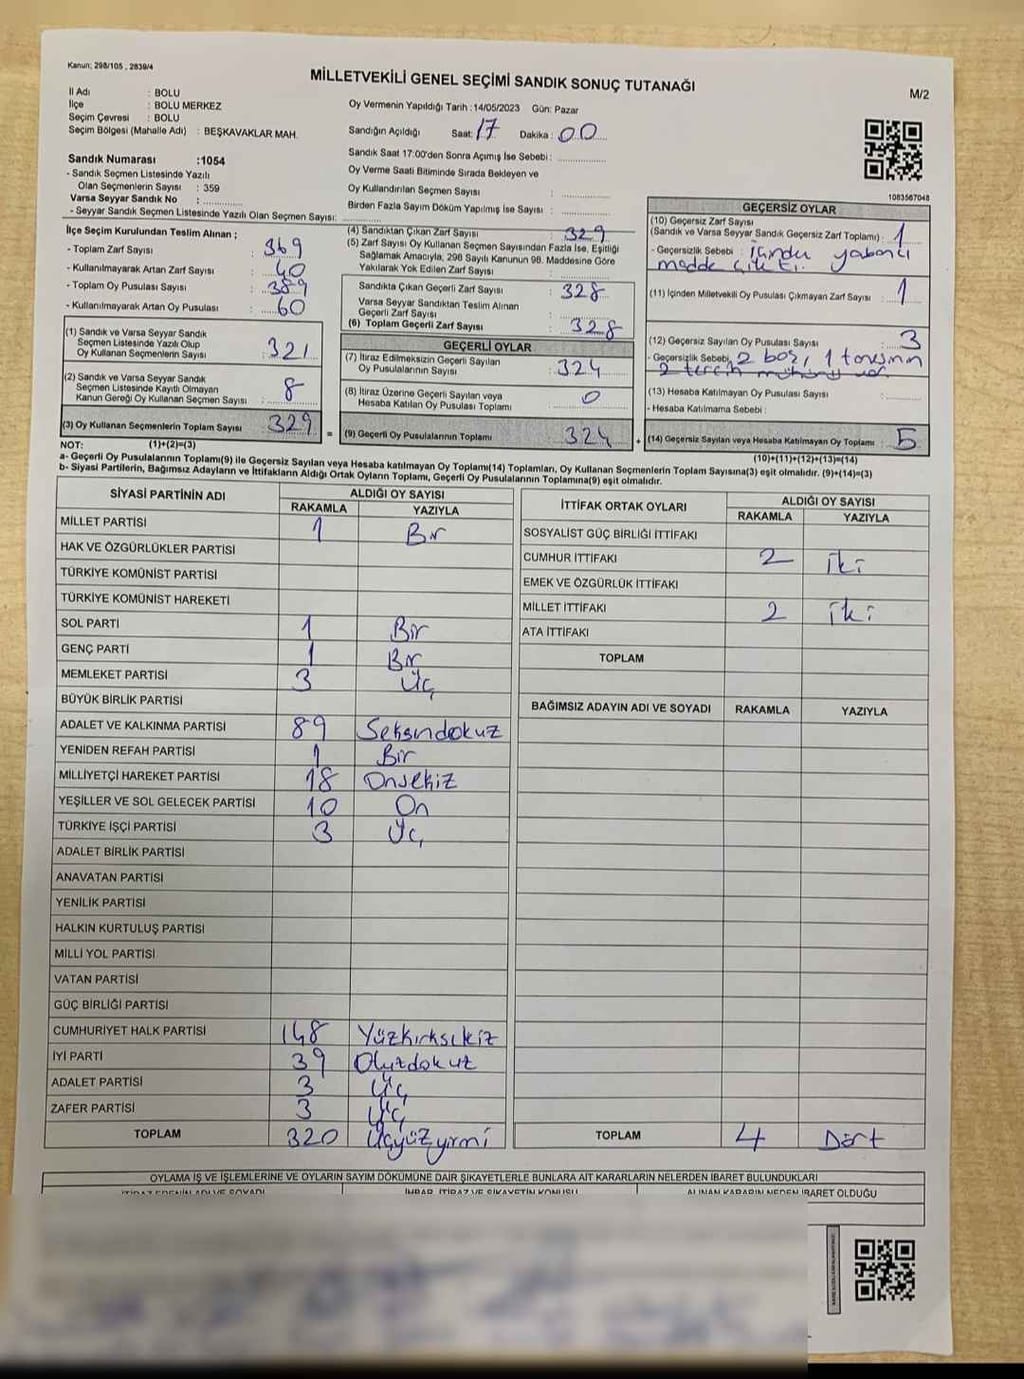 Kanun: 298/105 , 2839/4
MİLLETVEKİLİ GENEL SEÇİMİ SANDIK SONUÇ TUTANAĞI
M/2
İl Adı : BOLU
İlçe : BOLU MERKEZ
Seçim Çevresi : BOLU
Seçim Bölgesi (Mahalle Adı) : BEŞKAVAKLAR MAH.
Oy Vermenin Yapıldığı Tarih : 14/05/2023 Gün: Pazar
Sandığın Açıldığı Saat: 17 Dakika : 00
Sandık Numarası :1054
- Sandık Seçmen Listesinde Yazılı
Olan Seçmenlerin Sayısı : 359
Varsa Seyyar Sandık No :
- Seyyar Sandık Seçmen Listesinde Yazılı Olan Seçmen Sayısı:
Sandık Saat 17:00'den Sonra Açılmış İse Sebebi :
Oy Verme Saati Bitiminde Sırada Bekleyen ve
Oy Kullandırılan Seçmen Sayısı :
Birden Fazla Sayım Döküm Yapılmış İse Sayısı :
1083567048
İlçe Seçim Kurulundan Teslim Alınan ;
- Toplam Zarf Sayısı : 369
- Kullanılmayarak Artan Zarf Sayısı : 40
- Toplam Oy Pusulası Sayısı : 389
- Kullanılmayarak Artan Oy Pusulası : 60
(1) Sandık ve Varsa Seyyar Sandık
Seçmen Listesinde Yazılı Olup
Oy Kullanan Seçmenlerin Sayısı : 321
(2) Sandık ve Varsa Seyyar Sandık
Seçmen Listesinde Kayıtlı Olmayan
Kanun Gereği Oy Kullanan Seçmen Sayısı : 8
(3) Oy Kullanan Seçmenlerin Toplam Sayısı : 329
(1)+(2)=(3)
(4) Sandıktan Çıkan Zarf Sayısı : 329
(5) Zarf Sayısı Oy Kullanan Seçmen Sayısından Fazla İse, Eşitliği
Sağlamak Amacıyla, 298 Sayılı Kanunun 98. Maddesine Göre
Yakılarak Yok Edilen Zarf Sayısı :
Sandıkta Çıkan Geçerli Zarf Sayısı : 328
Varsa Seyyar Sandıktan Teslim Alınan
Geçerli Zarf Sayısı :
(6) Toplam Geçerli Zarf Sayısı : 328
GEÇERLİ OYLAR
(7) İtiraz Edilmeksizin Geçerli Sayılan
Oy Pusulalarının Sayısı : 324
(8) İtiraz Üzerine Geçerli Sayılan veya
Hesaba Katılan Oy Pusulası Toplamı : 0
= (9) Geçerli Oy Pusulalarının Toplamı : 324
GEÇERSİZ OYLAR
(10) Geçersiz Zarf Sayısı
(Sandık ve Varsa Seyyar Sandık Geçersiz Zarf Toplamı) : 1
- Geçersizlik Sebebi : İçinden yabancı
madde çıktı.
(11) İçinden Milletvekili Oy Pusulası Çıkmayan Zarf Sayısı : 1
(12) Geçersiz Sayılan Oy Pusulası Sayısı : 3
- Geçersizlik Sebebi: 2 boş, 1 tanesinin
2 tercih mühürü var
(13) Hesaba Katılmayan Oy Pusulası Sayısı :
- Hesaba Katılmama Sebebi :
+ (14) Geçersiz Sayılan veya Hesaba Katılmayan Oy Toplamı : 5
(10)+(11)+(12)+(13)=(14)
NOT:
a- Geçerli Oy Pusulalarının Toplamı(9) ile Geçersiz Sayılan veya Hesaba katılmayan Oy Toplamı(14) Toplamları, Oy Kullanan Seçmenlerin Toplam Sayısına(3) eşit olmalıdır. (9)+(14)=(3)
b- Siyasi Partilerin, Bağımsız Adayların ve İttifakların Aldığı Ortak Oyların Toplamı, Geçerli Oy Pusulalarının Toplamına(9) eşit olmalıdır.
SİYASİ PARTİNİN ADI ALDIĞI OY SAYISI
RAKAMLA YAZIYLA
MİLLET PARTİSİ 1 Bir
HAK VE ÖZGÜRLÜKLER PARTİSİ
TÜRKİYE KOMÜNİST PARTİSİ
TÜRKİYE KOMÜNİST HAREKETİ
SOL PARTİ 1 Bir
GENÇ PARTİ 1 Bir
MEMLEKET PARTİSİ 3 Üç
BÜYÜK BİRLİK PARTİSİ
ADALET VE KALKINMA PARTİSİ 89 Seksendokuz
YENİDEN REFAH PARTİSİ 1 Bir
MİLLİYETÇİ HAREKET PARTİSİ 18 Onsekiz
YEŞİLLER VE SOL GELECEK PARTİSİ 10 On
TÜRKİYE İŞÇİ PARTİSİ 3 Üç
ADALET BİRLİK PARTİSİ
ANAVATAN PARTİSİ
YENİLİK PARTİSİ
HALKIN KURTULUŞ PARTİSİ
MİLLİ YOL PARTİSİ
VATAN PARTİSİ
GÜÇ BİRLİĞİ PARTİSİ
CUMHURİYET HALK PARTİSİ 148 Yüzkırksekiz
İYİ PARTİ 39 Otuzdokuz
ADALET PARTİSİ 3 Üç
ZAFER PARTİSİ 3 Üç
TOPLAM 320 Üçyüzyirmi
İTTİFAK ORTAK OYLARI ALDIĞI OY SAYISI
RAKAMLA YAZIYLA
SOSYALİST GÜÇ BİRLİĞİ İTTİFAKI
CUMHUR İTTİFAKI 2 iki
EMEK VE ÖZGÜRLÜK İTTİFAKI
MİLLET İTTİFAKI 2 iki
ATA İTTİFAKI
TOPLAM
BAĞIMSIZ ADAYIN ADI VE SOYADI RAKAMLA YAZIYLA
TOPLAM 4 Dört
OYLAMA İŞ VE İŞLEMLERİNE VE OYLARIN SAYIM DÖKÜMÜNE DAİR ŞİKAYETLERLE BUNLARA AİT KARARLARIN NELERDEN İBARET BULUNDUKLARI
İTİRAZ EDENİN ADI VE SOYADI İHBAR, İTİRAZ VE ŞİKAYETİN KONUSU ALINAN KARARIN NEDEN İBARET OLDUĞU